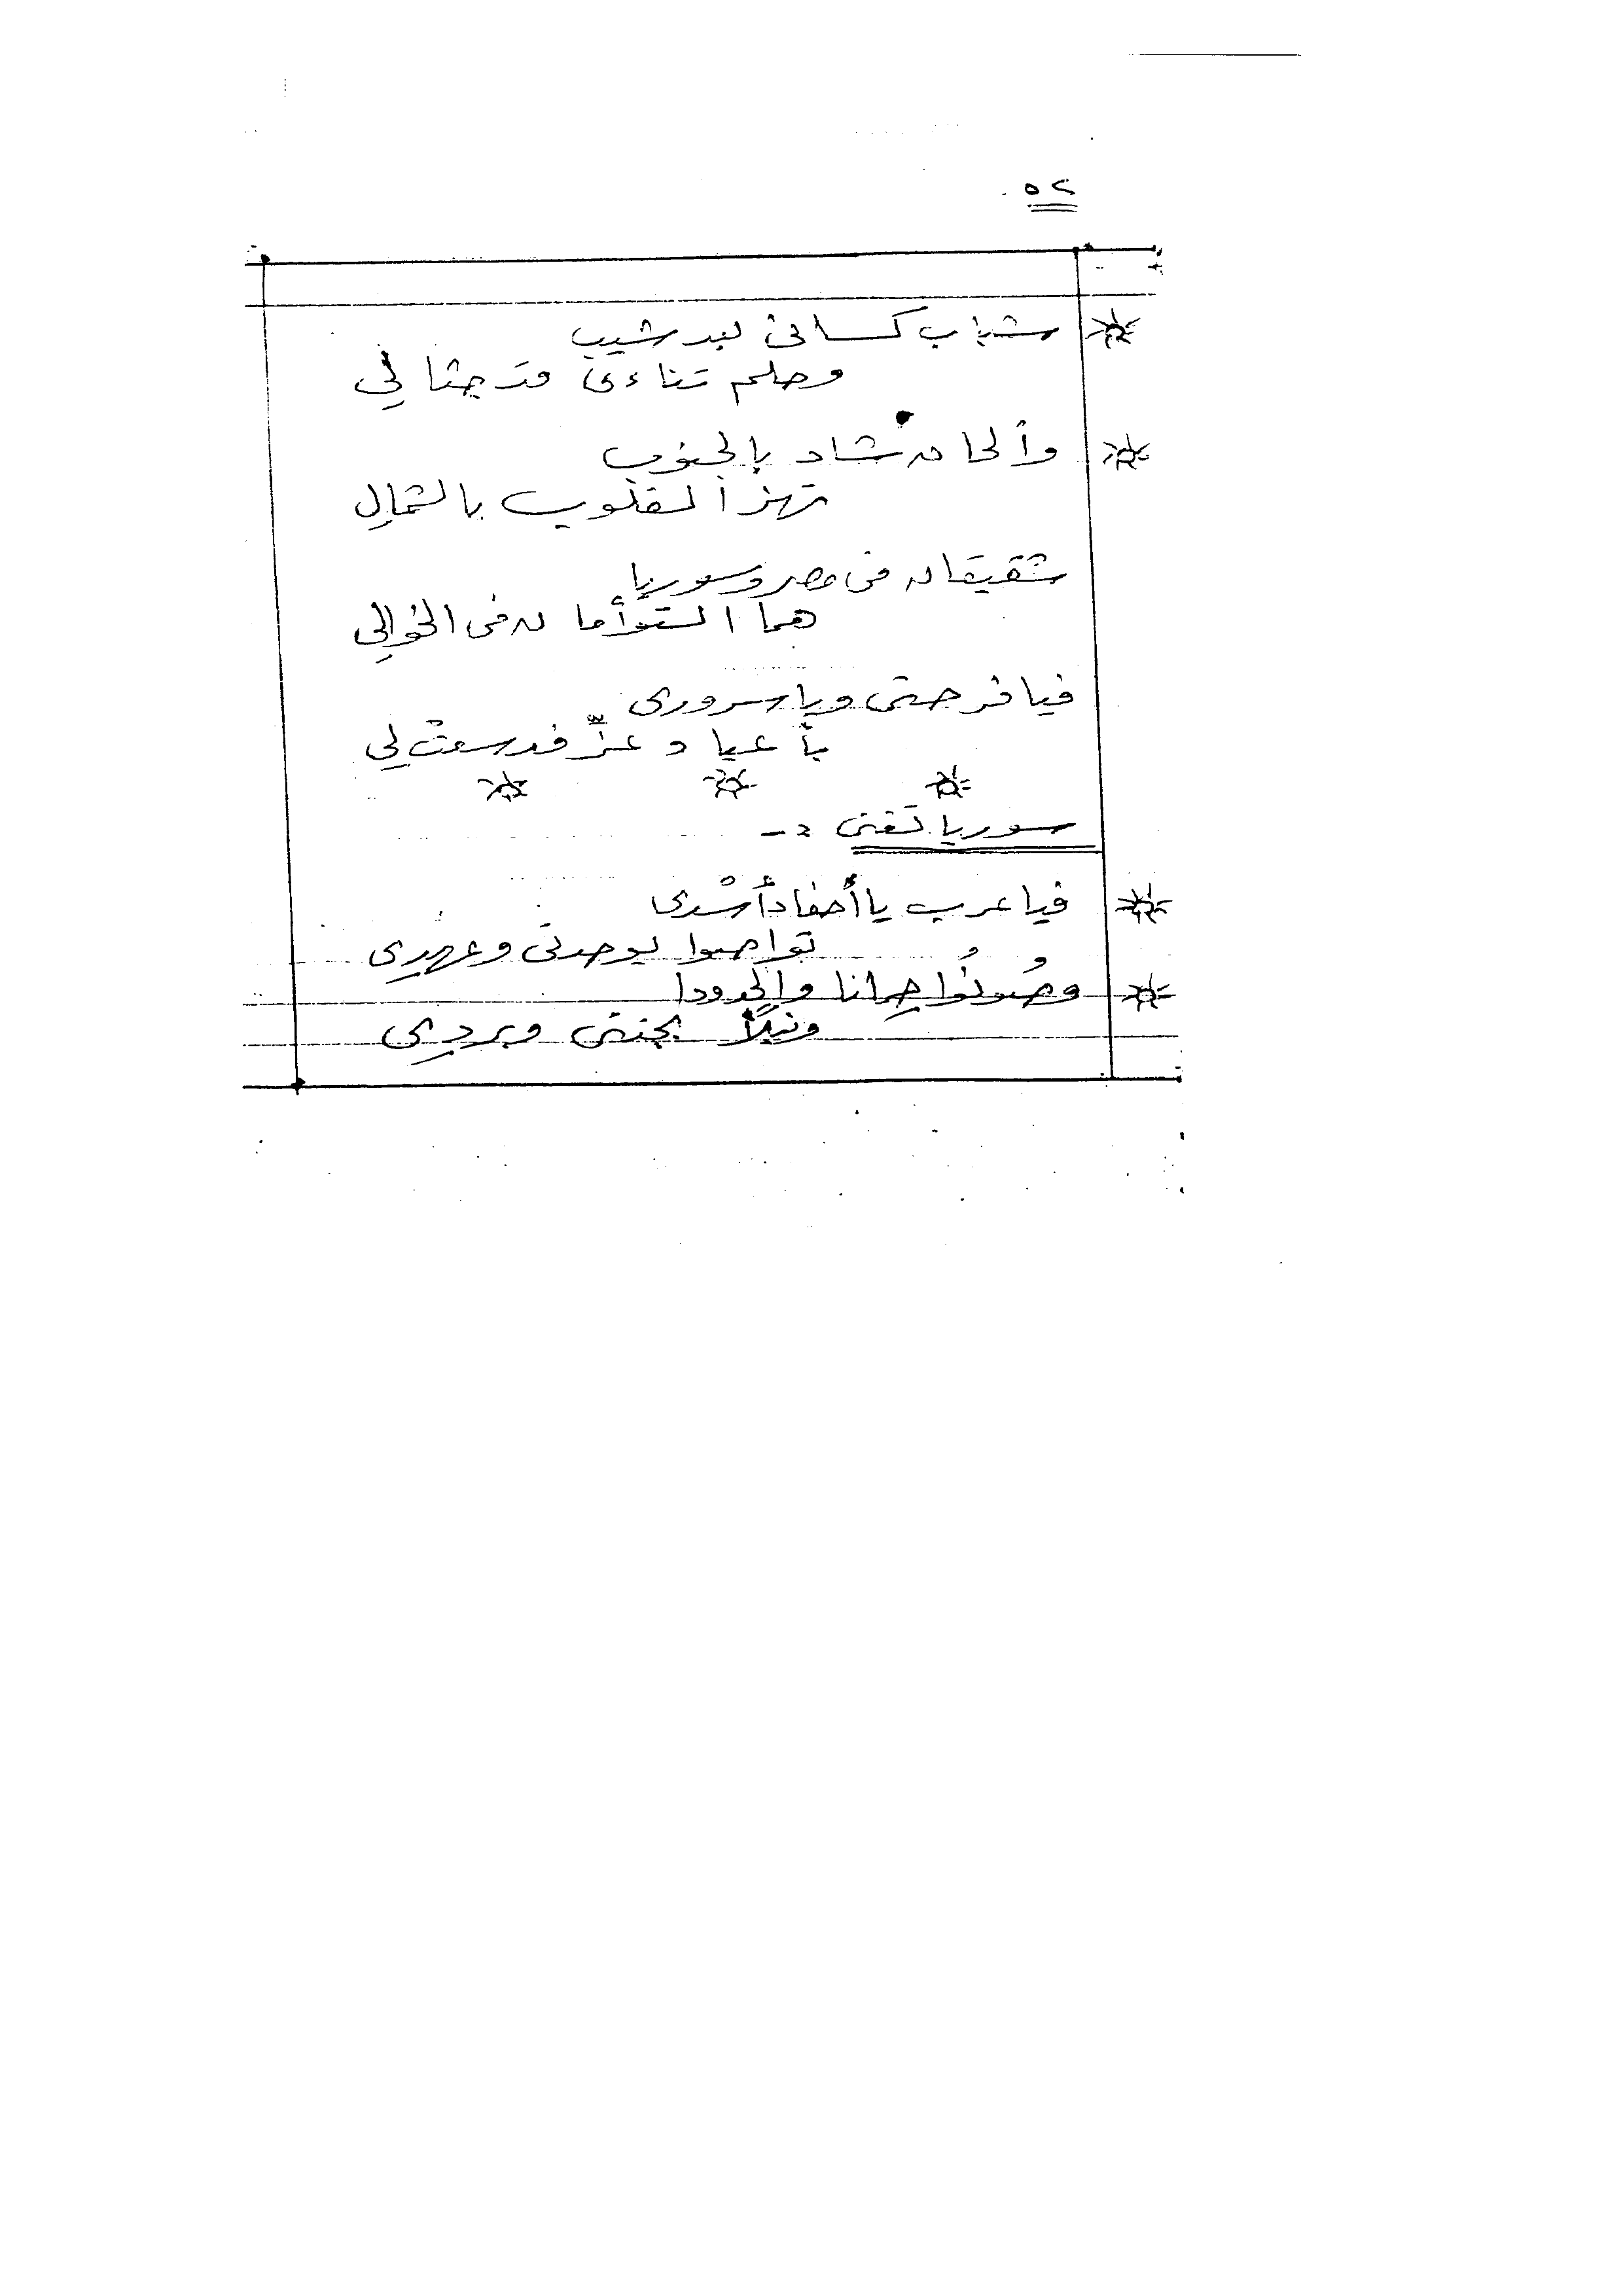 ٥٢
شباب كسانى بعد شيب
وحلم تناءى قد جثا لي
وألحان شاد بالجنوب
تهز القلوب بالشمال
شقيقان فى مصر وسوريا
هما التوأمان فى الخوالي
فيا فرحتى ويا سرورى
بأعياد عزّ قد سعت لي
سوريا تغنى :-
فيا عرب يا أحفاد أُسْدى
تواصوا بوحدتى وعهدى
وصُونُوا حِمانا والحدودا
ونيلاً بجنتى وبردى